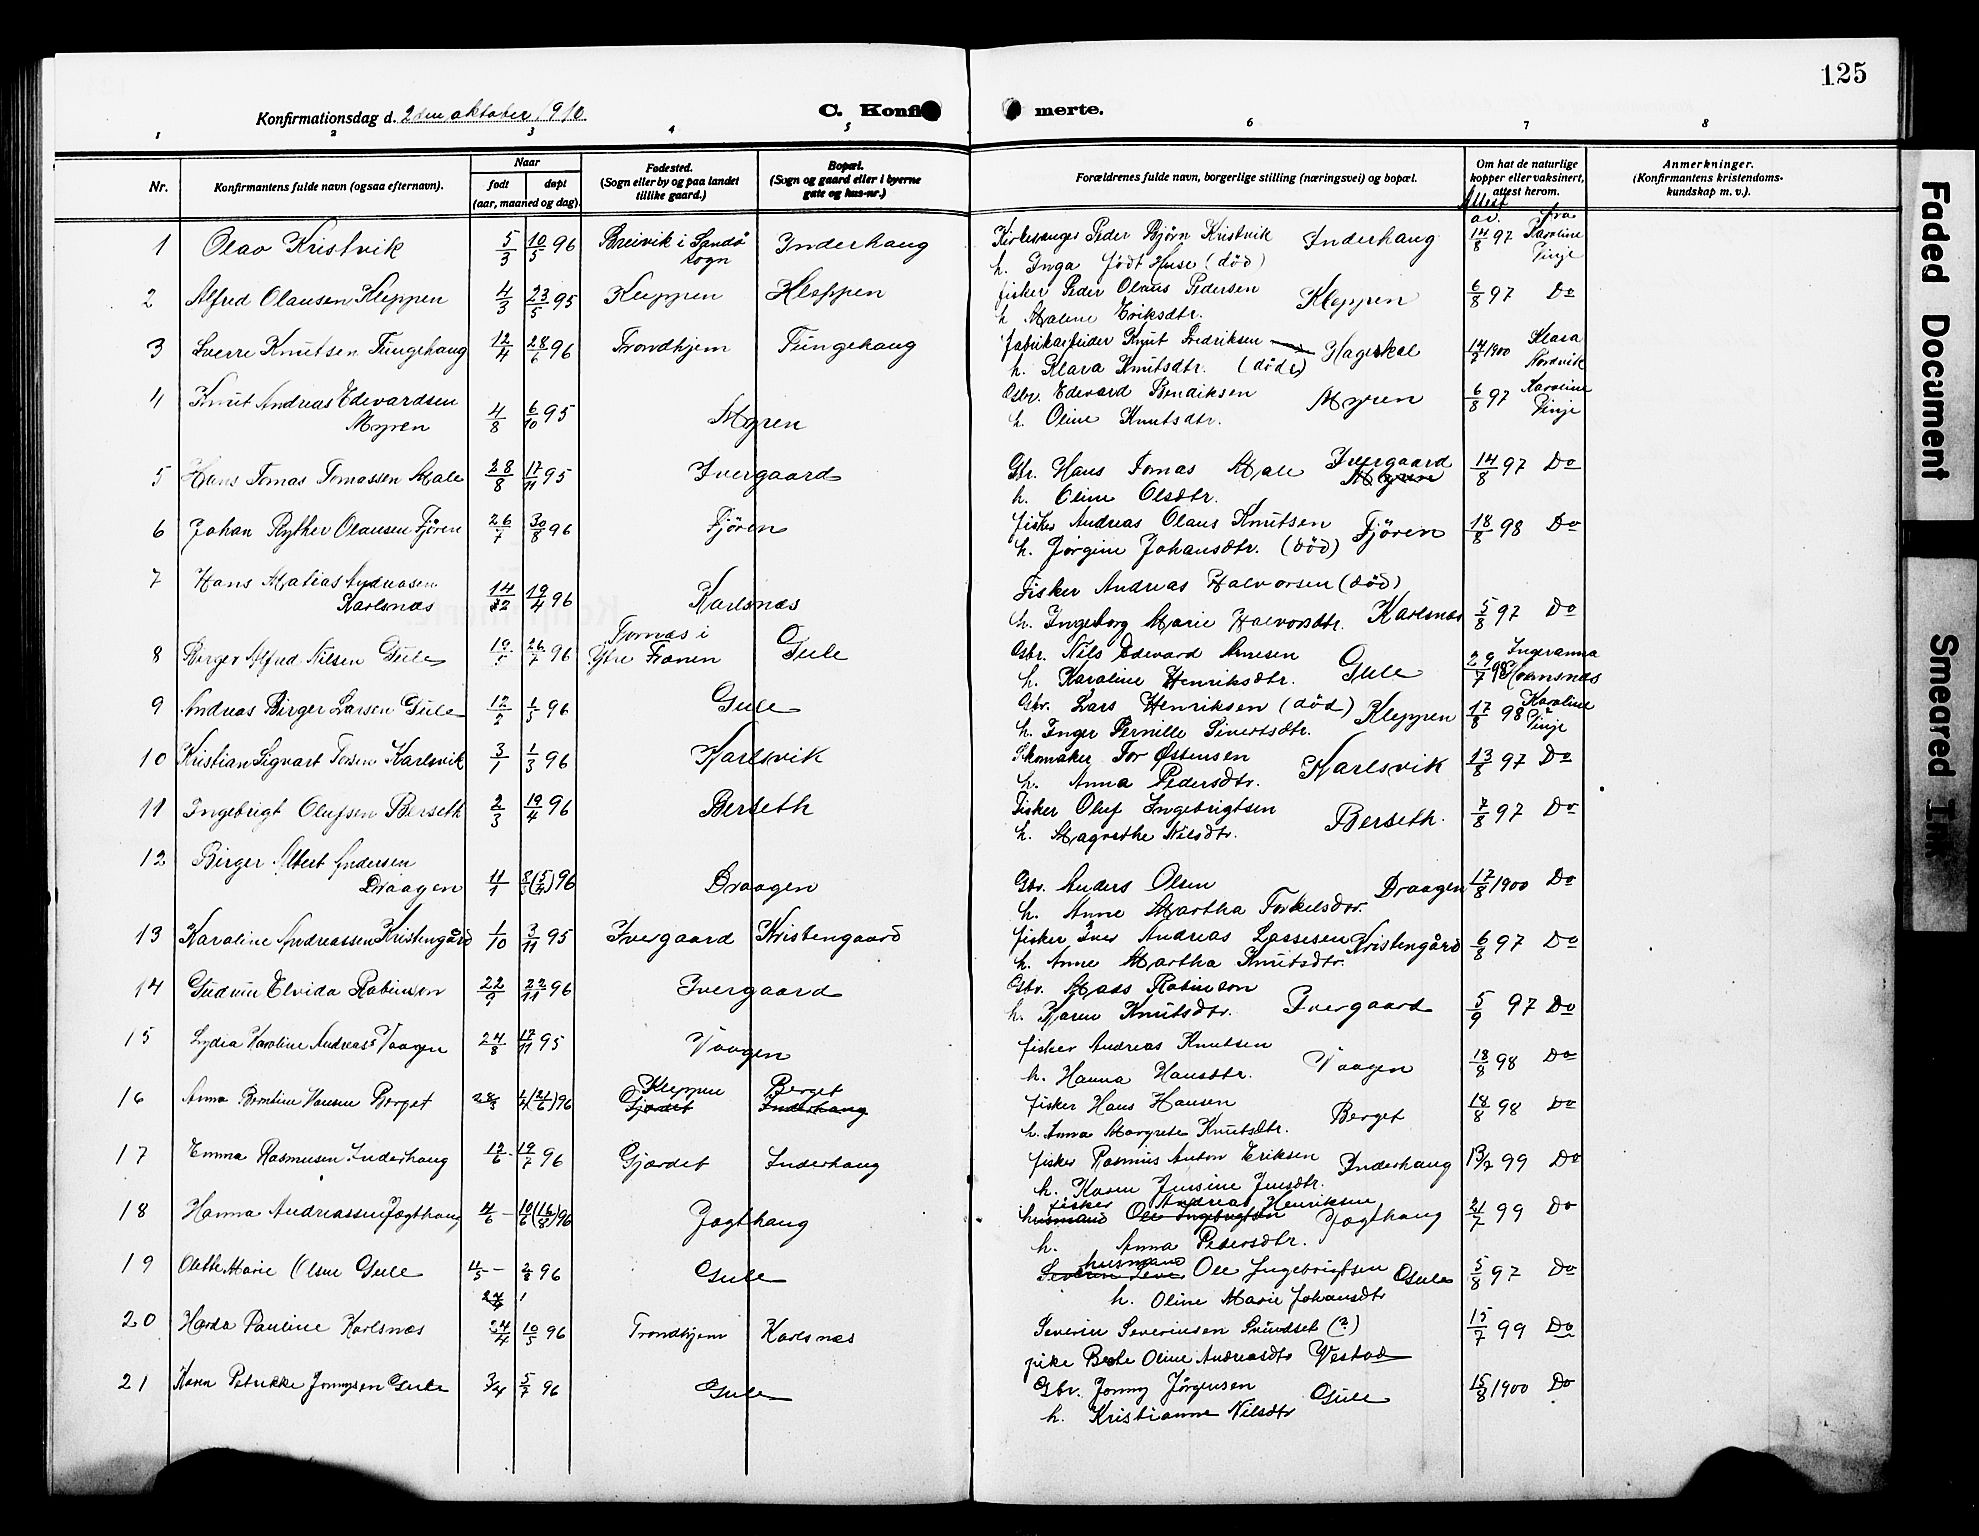 125
Konfirmationsdag d. 2den oktober 1910
C. Konfi merte.
1 2 3 4 5 6 7 8
Nr. Konfirmantens fulde navn (ogsaa efternavn). Naar født døpt (aar, maaned og dag). Fødested. (Sogn eller by og paa landet tillike gaard.) Bopæl. (Sogn og gaard eller i byerne gate og hus-nr.) Forældrenes fulde navn, borgerlige stilling (næringsvei) og bopæl. Om hat de naturlige kopper eller vaksinert, attest herom. Anmerkninger. (Konfirmantens kristendomskundskap m. v.).
Attest av. fra
1 Olav Kristvik 5/3 10/5 96 Breivik i Sandø sogn Inderhaug Kirkesanger Peder Bjørn Kristvik Inderhaug 14/8 97 Karoline Vinje
h. Inga født Huse (død)
2 Alfred Olausen Kleppen 4/3 23/5 95 Kleppen Kleppen fisker Peder Olaus Pedersen Kleppen 6/8 97 Do
h. Malene Eriksdtr.
3 Sverre Knutsen Tungehaug 12/4 28/6 96 Trondhjem Tungehaug fabrikarbeider Knut Fredriksen Hageskal 14/7 1900 Klara Nordvik
h. Klara Knutsdtr. (døde)
4 Knut Andreas Edevardsen Myren 4/8 6/10 95 Myren Gbr. Edevard Bendiksen Myren 6/8 97 Karoline Vinje
h. Oline Knutsdtr.
5 Hans Tomas Tomassen Male 28/8 17/11 95 Ivergaard Gbr. Hans Tomas Male Ivergaard Myren 14/8 97 Do
h. Oline Olsdtr.
6 Johan Ryther Olausen Fjøren 26/7 30/8 96 Fjøren fisker Andreas Olaus Knutsen Fjøren 18/8 98 Do
h. Jørgine Johansdtr. (død)
7 Hans Matias Andreasen Karlsnæs 14/2 19/4 96 Karlsnæs Fisker Andreas Halvorsen (død)
h. Ingeborg Marie Halvorsdtr. Karlsnæs 5/8 97 Do
8 Birger Alfred Nilsen Gule 26/7 96 Tornæs i Ytre Frænen Gule Gbr. Nils Edevard Arnesen Gule 29/7 98 Ingeranna
h. Karoline Henriksdtr.
9 Andreas Birger Larsen Gule 12/2 1/5 96 Gule Gbr. Lars Henriksen (død) Kleppen 17/8 98 Karoline Vinje
h. Inger Pernille Sivertsdtr.
10 Kristian Sigvart Torsen Karlsvik 3/1 1/3 96 Karlsvik Skomaker Tor Østensen Karlsvik 13/8 97 Do
h. Anna Pedersdtr.
11 Ingebrigt Olufsen Berseth 2/3 19/4 96 Berseth Fisker Oluf Ingebrigtsen Berseth. 7/8 97 Do
h. Magrethe Nilsdtr.
12 Birger Albert Andersen Draagen 11/1 96 Draagen Gbr. Anders Olsen Draagen 17/8 1900 Do
h. Anne Martha Torkelsdtr.
13 Karoline Andreassen Kristengård 1/10 3/11 95 Ivergaard Kristengaard fisker Iver Andreas Lassesen Kristengård 6/8 97 Do
h. Anne Martha Knutsdtr.
14 Gudrun Elvida Robinson 22/9 22/11 96 Ivergaard Gbr. Mads Robinson
h. Karen Knutsdtr. Ivergaard 5/9 97 Do
15 Lydia Karoline Andreass Vaagen 24/8 17/11 95 Vaagen fisker Andreas Knutsen
h. Hanna Hansdtr. Vaagen 18/8 98 Do
16 Anna Berntine Hansen Berget 28/3 96 Kleppen Gjærdet Berget Inderhaug fisker Hans Hansen Berget 18/8 98 Do
h. Anna Margrete Knutsdtr.
17 Emma Rasmusen Inderhaug 12/6 19/7 96 Gjærdet Inderhaug fisker Rasmus Anton Eriksen Inderhaug 13/7 99 Do
h. Karen Jensine Jensdtr.
18 Hanna Andreassen Jægthaug 4/6 10/6 (16/8) 96 Jægthaug fisker Andreas Henriksen
husmand Ole Ingebrigtsen Jægthaug 21/7 99 Do
h. Anna Pedersdtr.
19 Olette Marie Olsen Gule 4/5 2/8 96 Gule husmand Ole Ingebrigtsen Gule 5/8 97 Do
h. Oline Marie Johansdtr
20 Harda Pauline Karlsnæs 24/4 10/5 96 Trondhjem Karlsnæs Severin Severinsen Sundset (?) 15/7 99 Do
pike Berte Oline Andreasdtr Vestad
21 Karen Petrikke Jonnysen Gule 3/4 5/7 96 Gule Gbr. Jonny Jørgensen Gule 15/8 1900 Do
h. Kristianne Nilsdtr
Faded Document
Smeared Ink